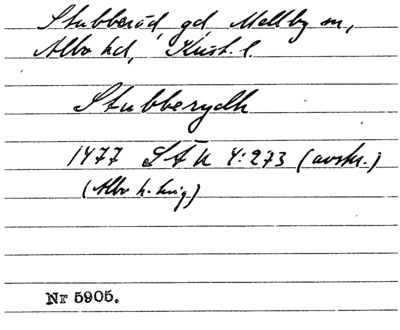 Stubberöd gd Mellby sn,
Albo hd, Krist. l.
Stubberydh
1477 LÄU 4:273 (avskr.)
(Albo h. hvig)
Nr 5905.